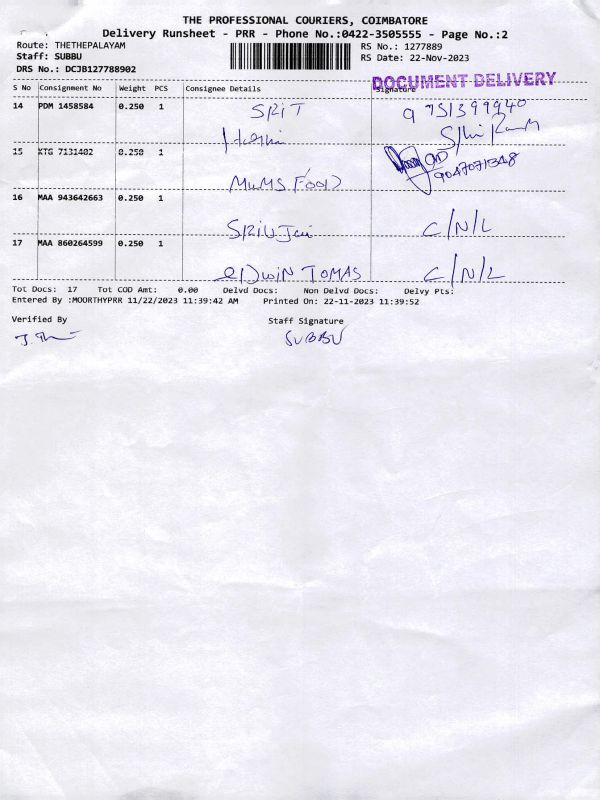 THE PROFESSIONAL COURIERS, COIMBATORE
Delivery Runsheet - PRR - Phone No.:0422-3505555 - Page No.:2
Route: THETHEPALAYAM RS No.: 1277889
Staff: SUBBU RS Date: 22-Nov-2023
DRS No.: DCJB127788902
DOCUMENT DELIVERY
S No Consignment No Weight PCS Consignee Details Signature
14 PDM 1458584 0.250 1 SRIT 9751399940
15 KTG 7131402 0.250 1 9047071348
MUMS FOOD
16 MAA 943642663 0.250 1
C/N/L
17 MAA 860264599 0.250 1
EDWIN TOMAS C/N/L
Tot Docs: 17 Tot COD Amt: 0.00 Delvd Docs: Non Delvd Docs: Delvy Pts:
Entered By :MOORTHYPRR 11/22/2023 11:39:42 AM Printed On: 22-11-2023 11:39:52
Verified By Staff Signature
SUBBU